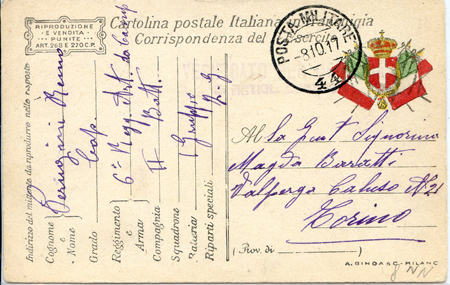 RIPRODUZIONE
E VENDITA
PUNITE
ART. 268 E 270 C.P.
Cartolina postale Italiana in franchigia
Corrispondenza del R. Esercito
POSTA MILITARE
8.10.17
44
Indirizzo del mittente da riprodurre nella risposta
Cognome
e
Nome
Grado Cap.
Reggimento 6° Regg. Art. da Camp
e
Arma
Compagnia II Batt.
Squadrone
Batteria Gruppo
Riparti speciali
Alla Gent Signorina
Magda Baratti
Valperga Caluso N 21
Torino
(Prov. di )
A. BINDA & C. - MILANO